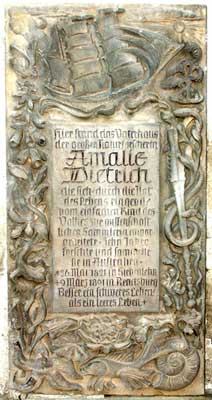 Hier stand das Vaterhaus
der großen Naturforscherin
Amalie
Dietrich
die sich durch die Not
des Lebens ringend
vom einfachen Kind des
Volkes zur wissenschaft-
lichen Sammlerin empor
arbeitete · Zehn Jahre
forschte und sammelte
sie in Australien ·
* 26. Mai 1821 in Siebenlehn
† 9. März 1891 in Rendsburg
Besser ein schweres Leben
als ein leeres Leben ·